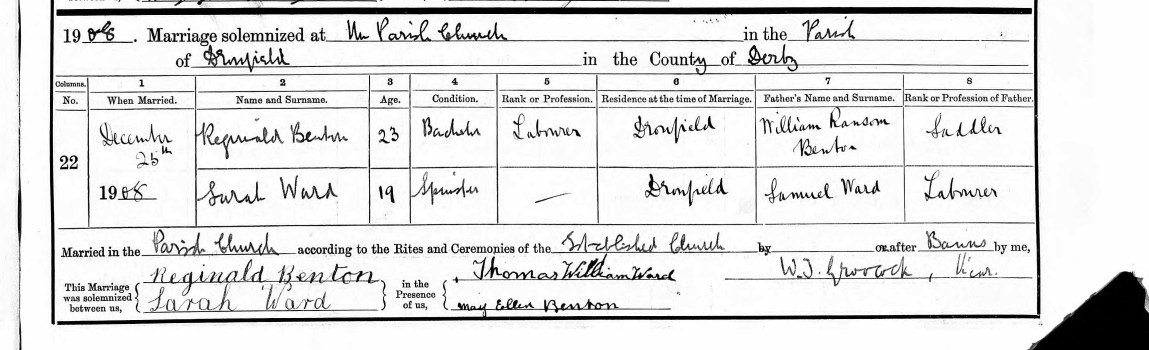 1908. Marriage solemnized at the Parish Church in the Parish
of Dronfield in the County of Derby
Columns. 1 2 3 4 5 6 7 8
No. When Married. Name and Surname. Age. Condition. Rank or Profession. Residence at the time of Marriage. Father's Name and Surname. Rank or Profession of Father.
22 December 25th 1908 Reginald Benton 23 Bachelor Labourer Dronfield William Ransom Benton Saddler
Sarah Ward 19 Spinster — Dronfield Samuel Ward Labourer
Married in the Parish Church according to the Rites and Ceremonies of the Established Church by or after Banns by me,
This Marriage was solemnized between us, { Reginald Benton } in the Presence of us, { Thomas William Ward W.J. Vicar.
Sarah Ward May Ellen Benton